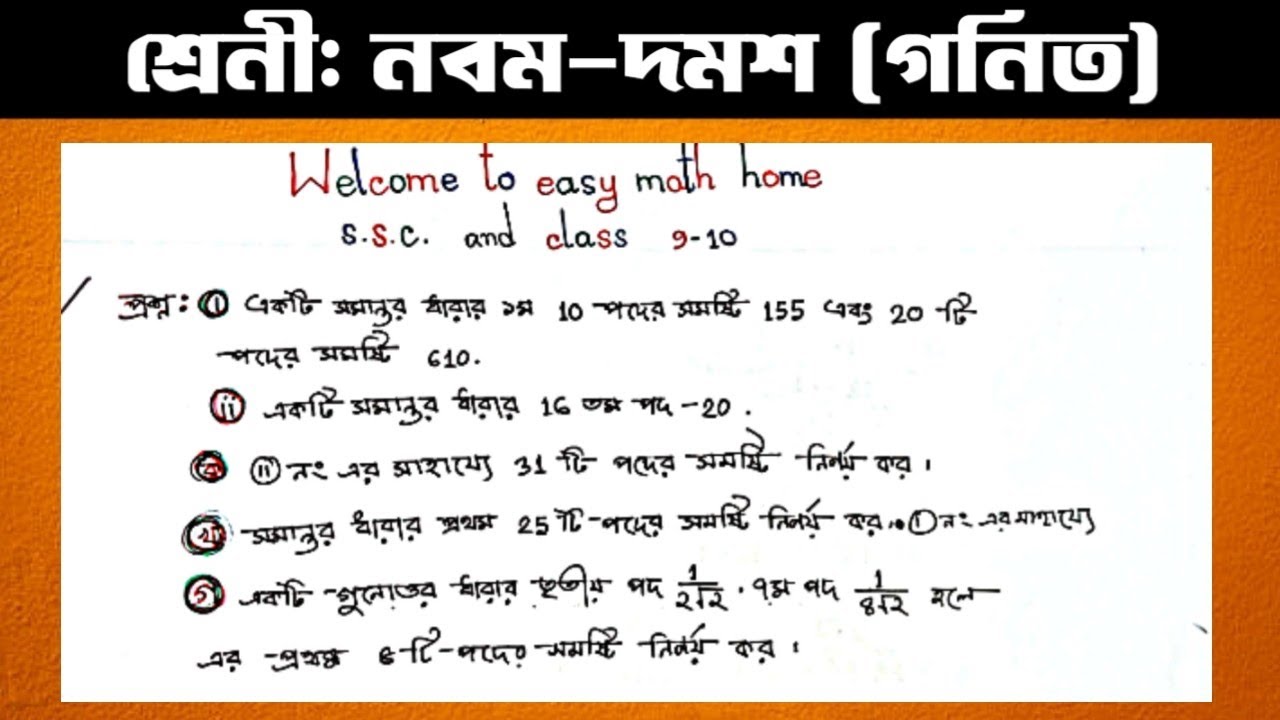 শ্রেনীঃ নবম-দমশ (গনিত)
Welcome to easy math home
S.S.C. and class 9-10
প্রশ্ন: (i) একটি সমান্তর ধারার ১ম 10 পদের সমষ্টি 155 এবং 20 টি
পদের সমষ্টি 610.
(ii) একটি সমান্তর ধারার 16 তম পদ -20.
(ক) (ii) নং এর সাহায্যে 31 টি পদের সমষ্টি নির্ণয় কর।
(খ) সমান্তর ধারার প্রথম 25 টি-পদের সমষ্টি নির্ণয় কর। (i) নং এর সাহায্যে
(গ) একটি গুনোত্তর ধারার তৃতীয় পদ 1/2√2 . ৭ম পদ 1/8√2 হলে
এর প্রথম 6 টি-পদের সমষ্টি নির্ণয় কর।